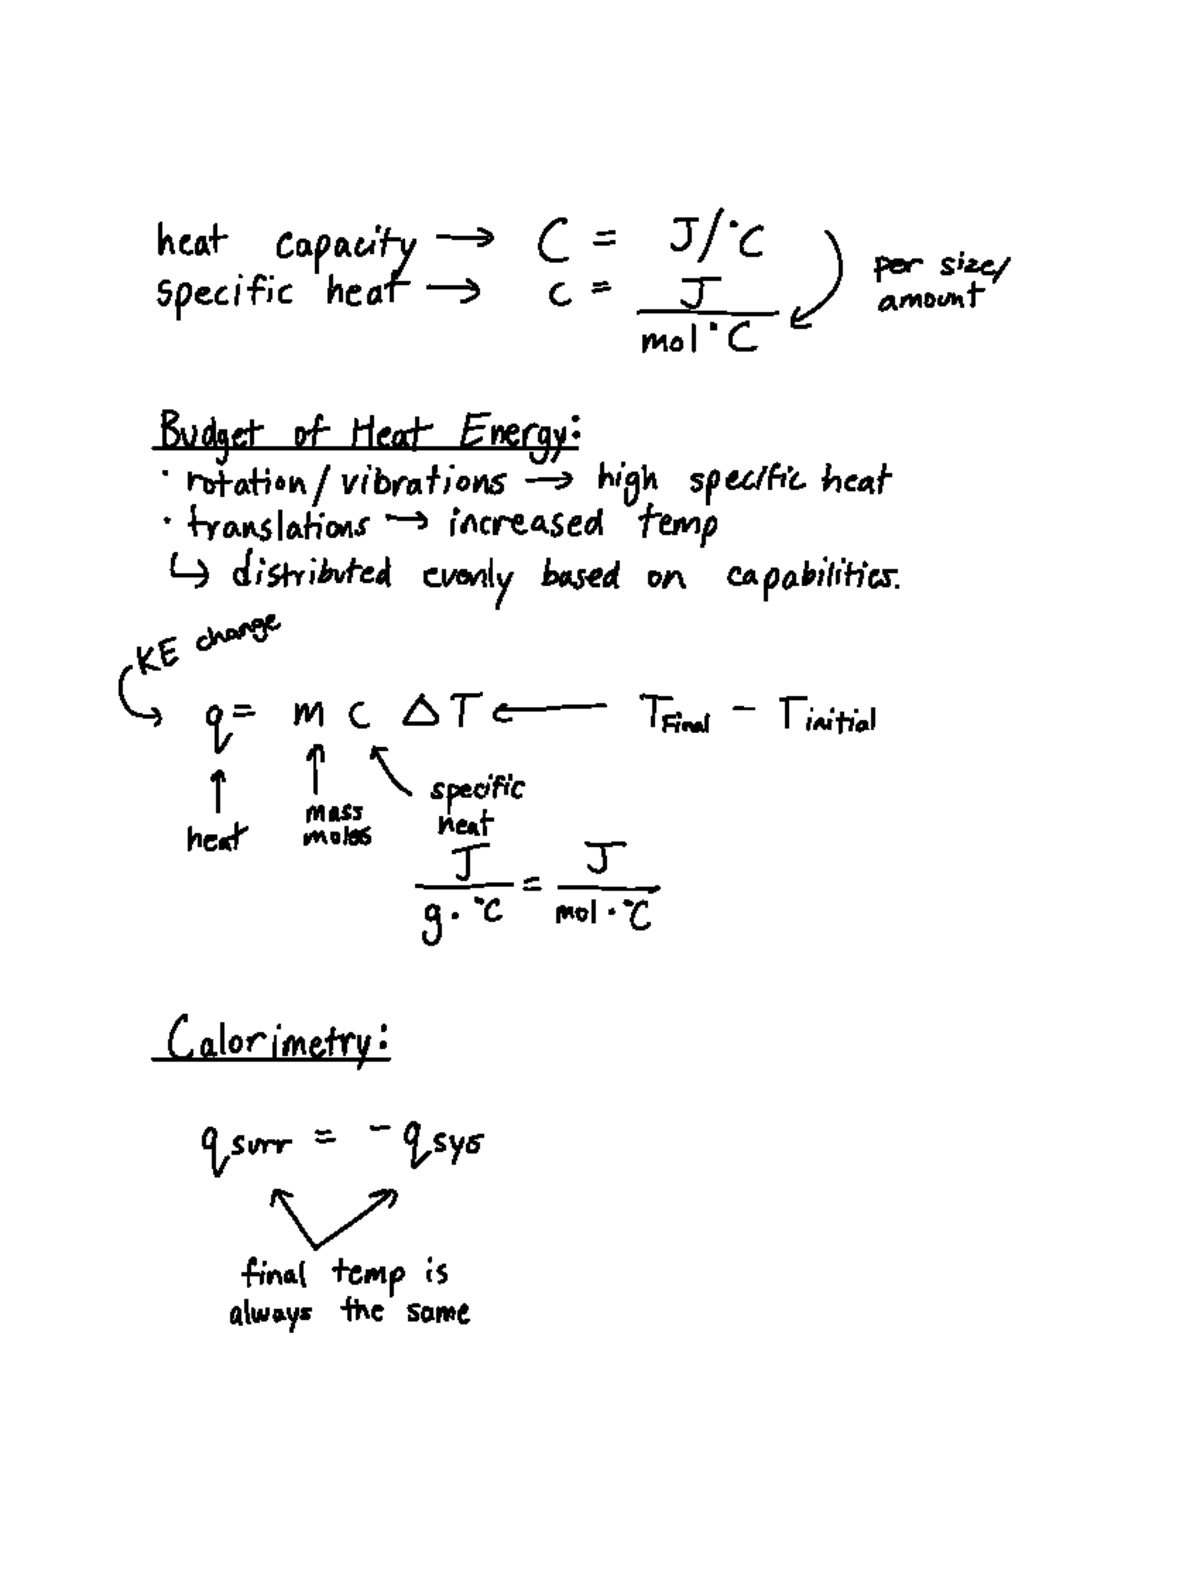 heat capacity → C = J/°C
specific heat → c = J / mol°C
per size/
amount
Budget of Heat Energy:
· rotation / vibrations → high specific heat
· translations → increased temp
↳ distributed evenly based on capabilities.
KE change
q = m c ΔT ← TFinal - Tinitial
heat
mass
moles
specific
heat
J / g · °C = J / mol · °C
Calorimetry:
qsurr = - qsys
final temp is
always the same